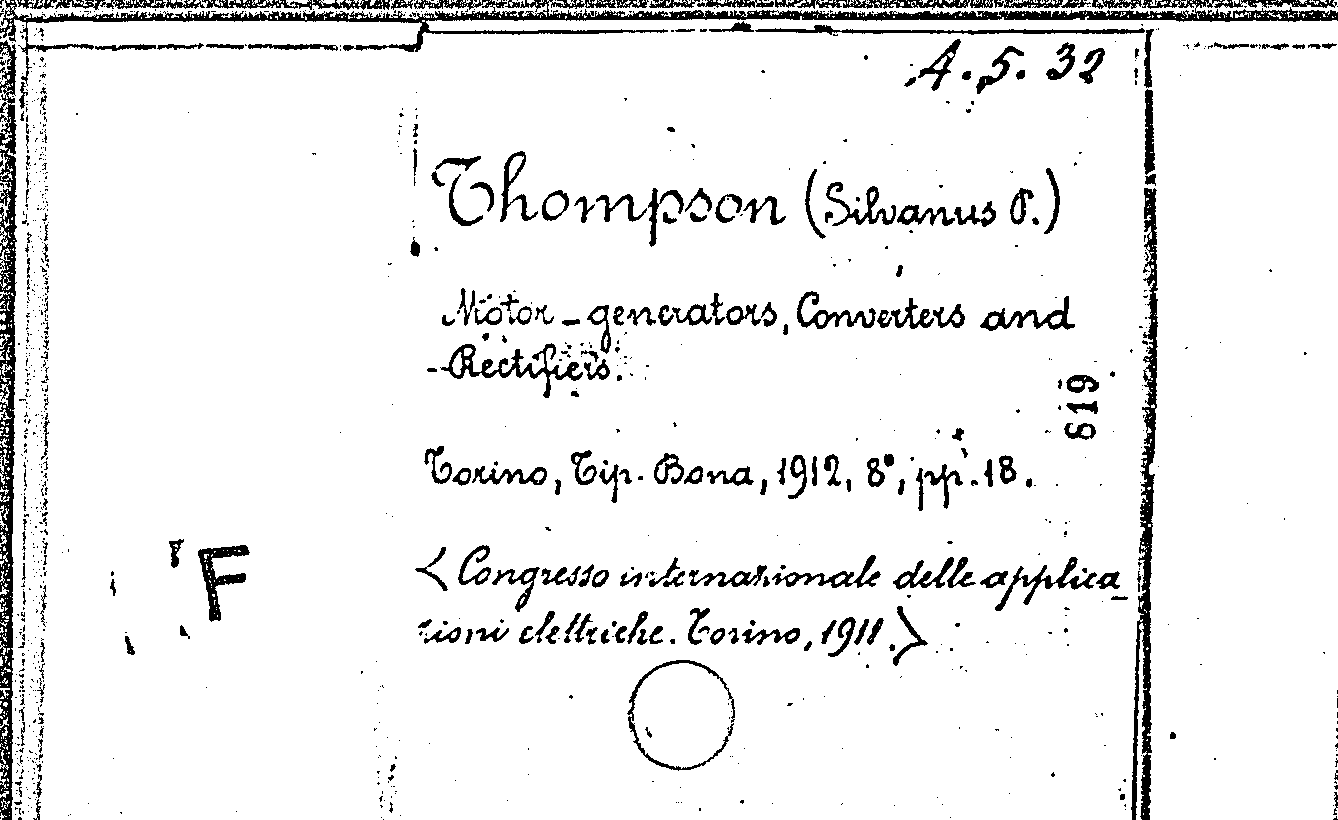 A.5.32
Thompson (Silvanus P.)
Motor-generators, Converters and
Rectifiers.
619
Torino, Tip. Bona, 1912, 8°, pp. 18.
F
<Congresso internazionale delle applica_
zioni elettriche. Torino, 1911.>